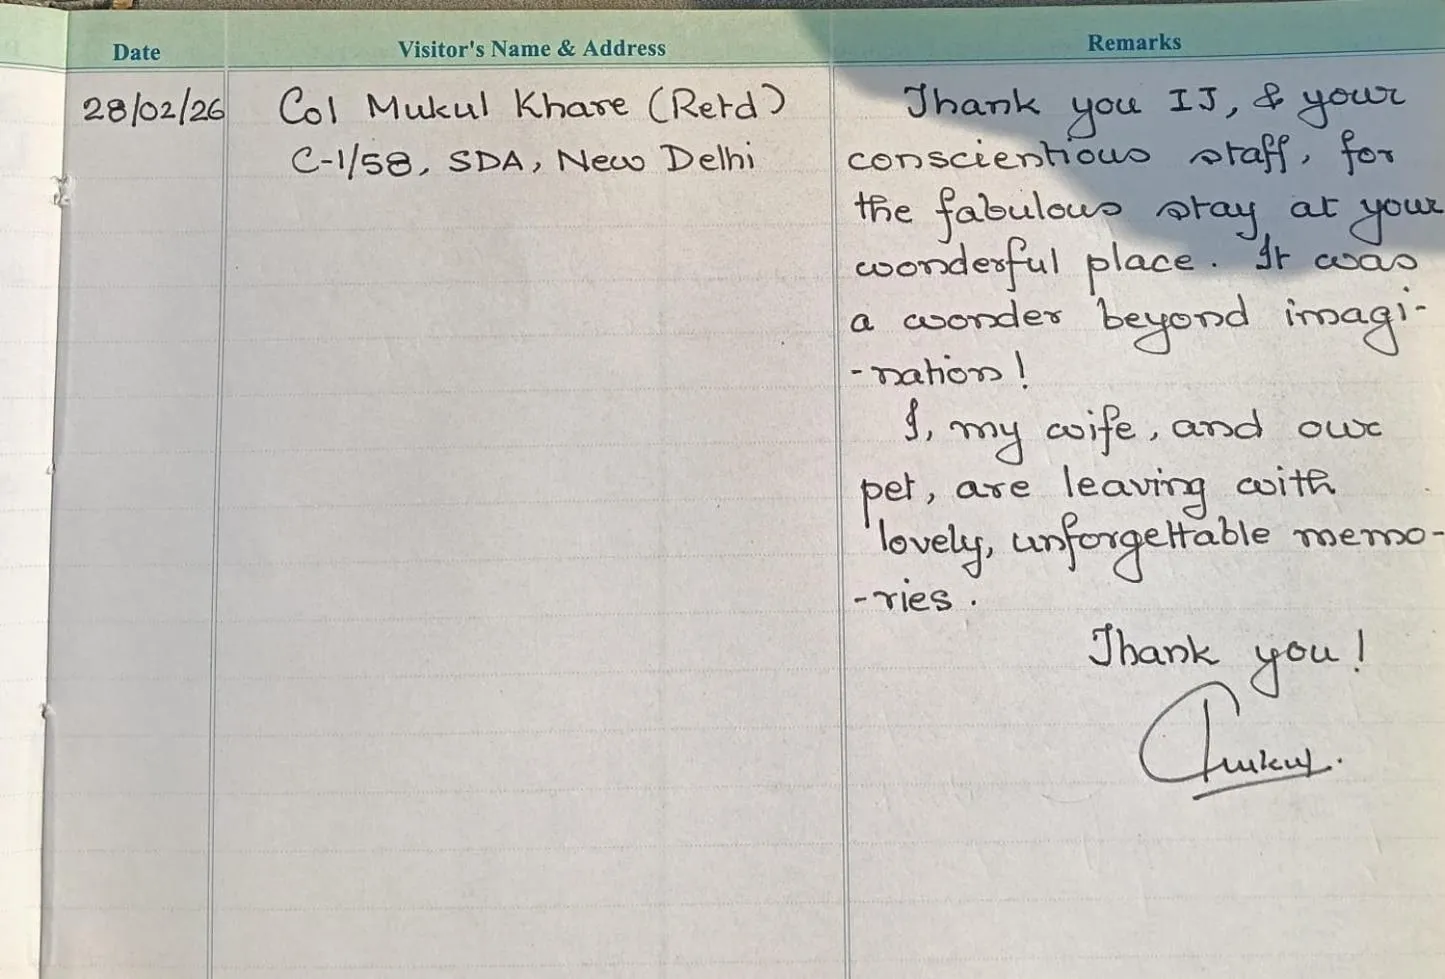 Date Visitor's Name & Address Remarks
28/02/26 Col Mukul Khare (Retd)
C-1/58, SDA, New Delhi
Thank you IJ, & your
conscientious staff, for
the fabulous stay at your
wonderful place. It was
a wonder beyond imagi-
-nation!
I, my wife, and our
pet, are leaving with
lovely, unforgettable memo-
-ries.
Thank you!
Mukul.